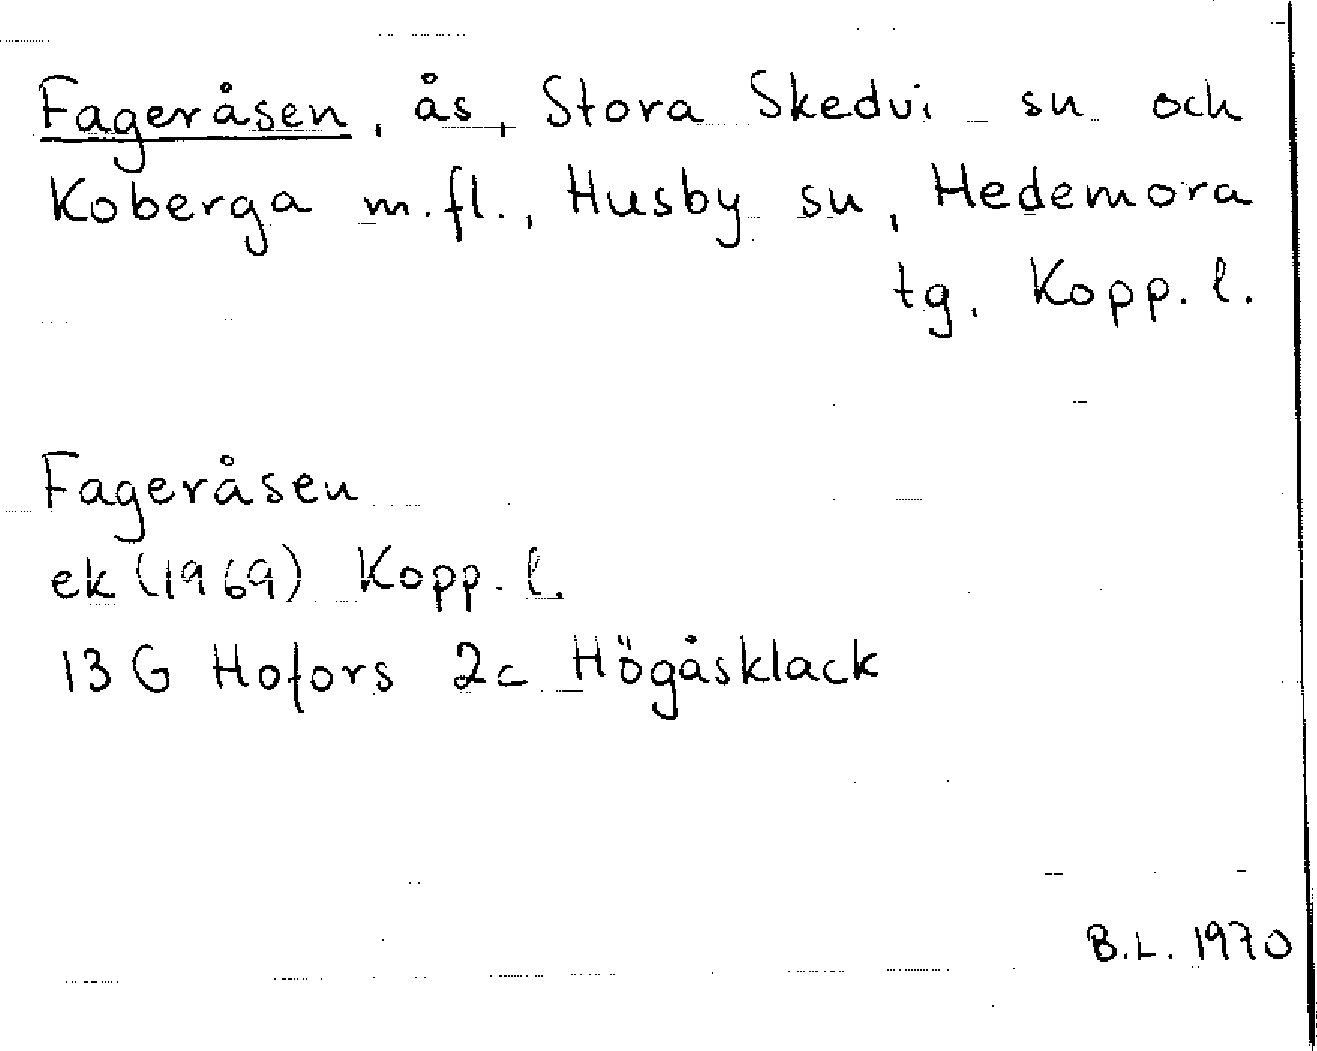 Fageråsen, ås, Stora Skedvi sn och
Koberga m.fl., Husby sn, Hedemora
tg, Kopp. l.
Fageråsen
ek (1969) Kopp. l.
13 G Hofors 2c Högåsklack
B.L. 1970